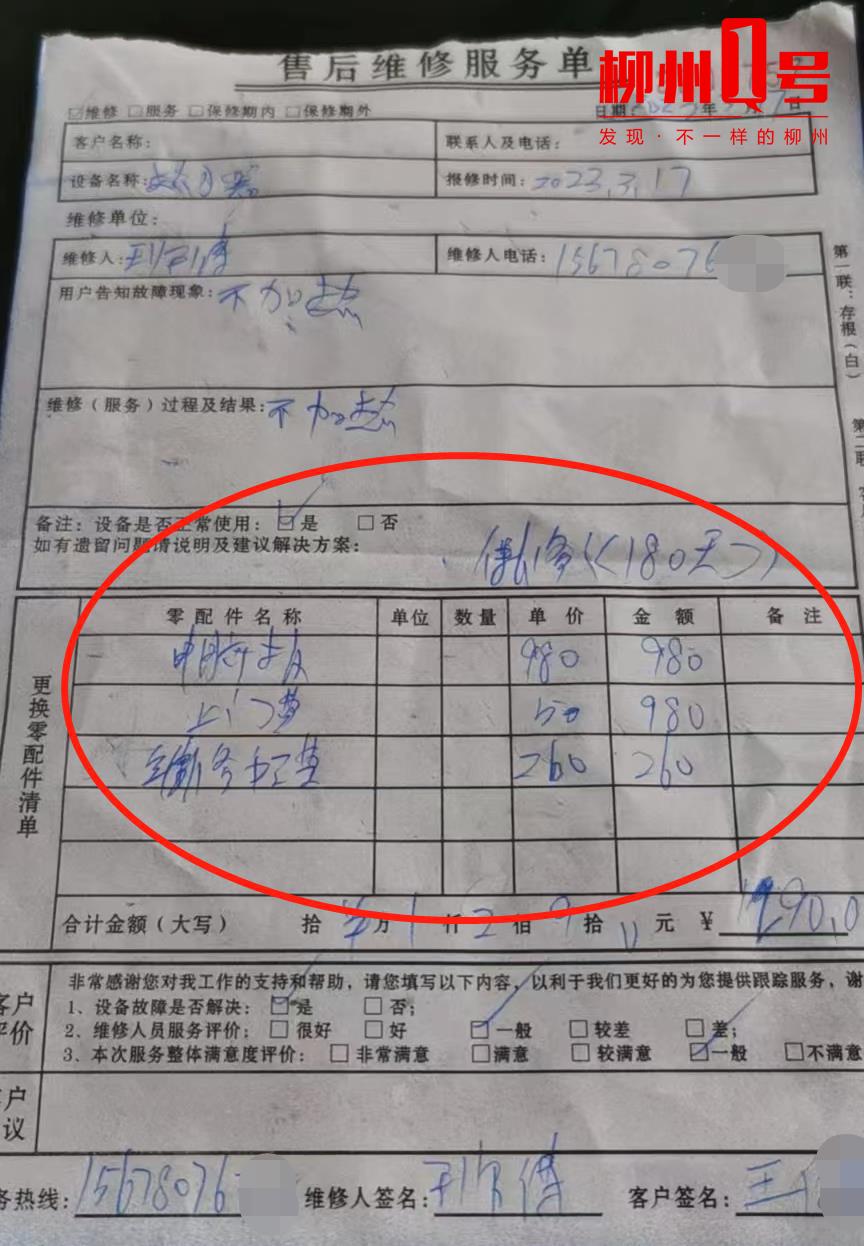 柳州1号
发现·不一样的柳州
售后维修服务单
维修 服务 保修期内 保修期外 日期: 年 月 日
客户名称: 联系人及电话:
设备名称: 报修时间:2023.3.17
维修单位:
维修人: 维修人电话:15678076
用户告知故障现象:不加热
维修(服务)过程及结果:不加热
备注:设备是否正常使用: 是 否
如有遗留问题请说明及建议解决方案:
(180天)
第一联:存根(白)
第二联
更换零配件清单
零配件名称 单位 数量 单价 金额 备注
980 980
上门费 50 980
260 260
合计金额(大写) 拾 万 1 仟 2 佰 9 拾 元 ¥ 1290.0
客户评价
非常感谢您对我工作的支持和帮助,请您填写以下内容,以利于我们更好的为您提供跟踪服务,谢
1、设备故障是否解决: 是 否;
2、维修人员服务评价: 很好 好 一般 较差 差;
3、本次服务整体满意度评价: 非常满意 满意 较满意 一般 不满意
户
议
务热线:15678076 维修人签名: 客户签名:王